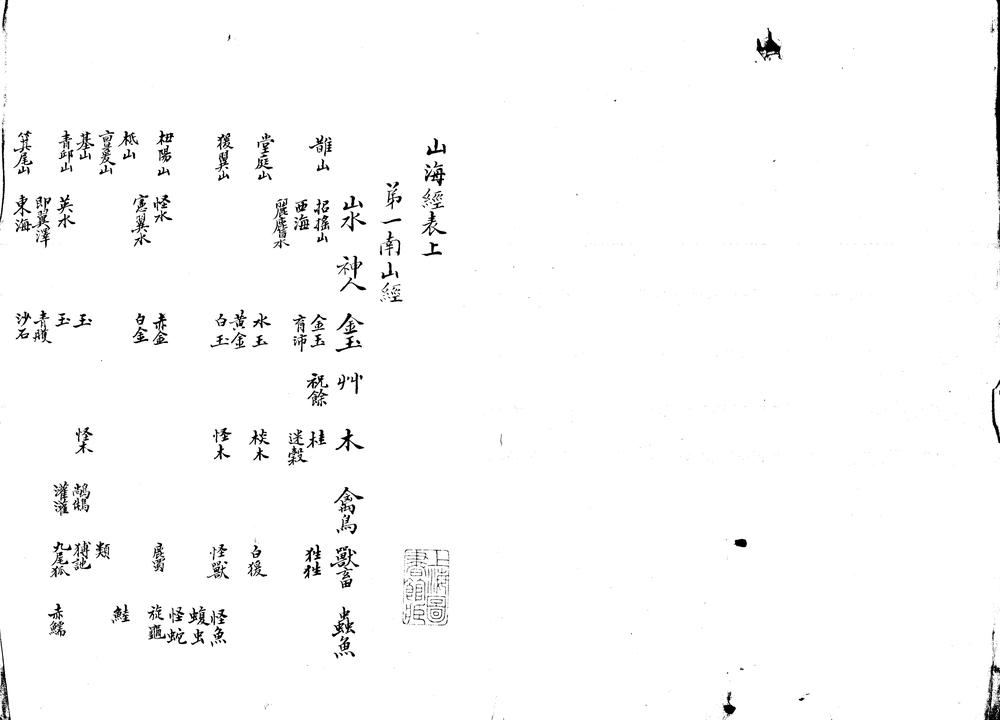 山海經表上
第一南山經
山水 神人 金玉 艸 木 禽鳥 獸畜 蟲魚
䧿山 招搖山 金玉 祝餘 桂 狌狌
西海 育沛 迷榖
麗𪊨水
堂庭山 水玉 棪木 白猨
黃金
猨翼山 白玉 怪木 怪獸 怪魚
蝮虫
怪蛇
杻陽山 怪水 赤金 鹿蜀 旋龜
憲翼水 白金
柢山 鯥
亶爰山 類
基山 玉 怪木 𪁺𩿧 猼訑
青邱山 英水 玉 灌灌 九尾狐 赤鱬
即翼澤 青雘
箕尾山 東海 沙石
上海圖書館